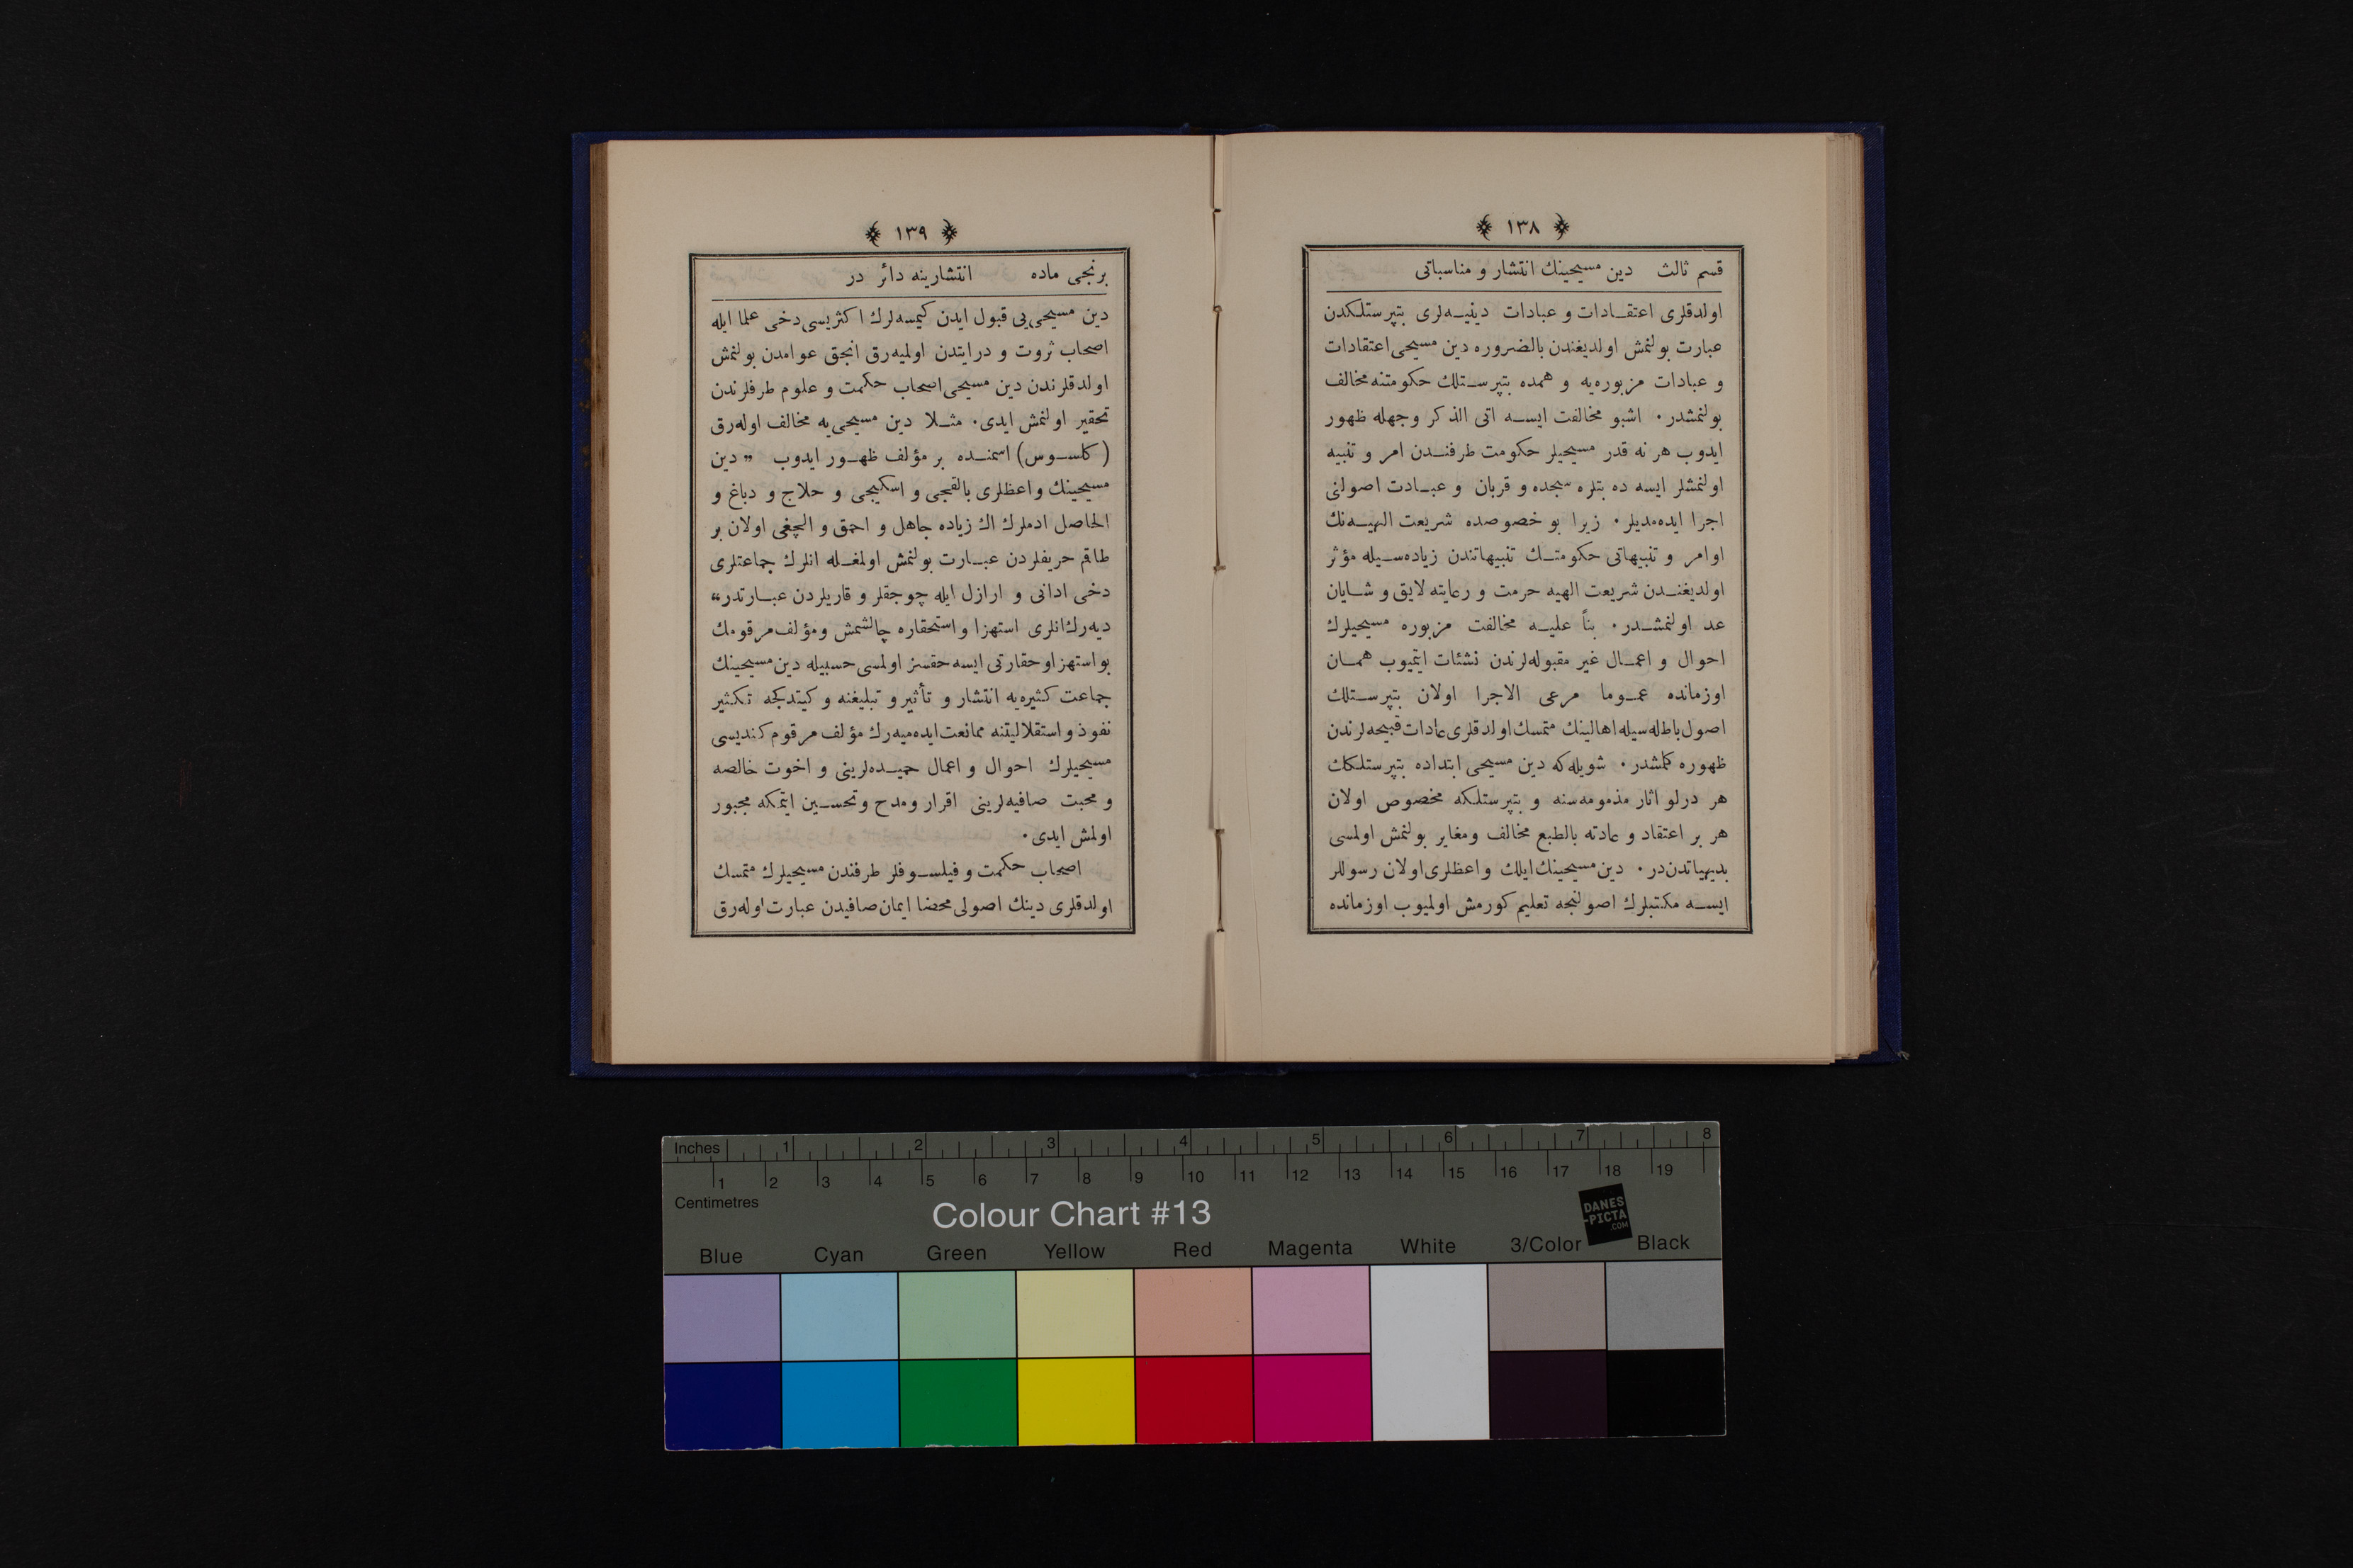 ﴿ ١٣٨ ﴾
قسم ثالث دین مسیحینك انتشار و مناسباتی
اولدقلری اعتقـادات و عبادات دینیـه‌لری بتپرستلکدن
عبارت بولنمش اولدیغندن بالضروره دین مسیحی اعتقادات
و عبادات مزبوره‌یه و همده بتپرسـتلك حکومتنه مخالف
بولنمشدر٠ اشبو مخالفت ایسـه اتی الذکر وجهله ظهور
ایدوب هر نه قدر مسیحیلر حکومت طرفنـدن امر و تنبیه
اولنمشلر ایسه ده بتلره سجده و قربان و عبـادت اصولنی
اجرا ایده‌مدیلر٠ زیرا بو خصوصده شریعت الهیـه‌نك
اوامر و تنبیهاتی حکومتـك تنبیهاتندن زیاده‌سـیله مؤثر
اولدیغنـدن شریعت الهیه حرمت و رعایته لایق و شـایان
عد اولنمشـدر٠ بنأً علیـه مخالفت مزبوره مسیحیلرك
احوال و اعمـال غیر مقبوله‌لرندن نشئات ایتمیوب همـان
اوزمانده عمـوما مرعی الاجرا اولان بتپرسـتلك
اصول باطله‌سیله اهالینك متمسك اولدقلری عادات قبیحه‌لرندن
ظهوره کلمشدر٠ شویله‌که دین مسیحی ابتداده بتپرستلکك
هر درلو اثار مذمومه‌سنه و بتپرستلکه مخصوص اولان
هر بر اعتقاد و عادته بالطبع مخالف ومغایر بولنمش اولمسی
بدیهیاتدن‌در٠ دین مسیحینك ایلك واعظلری اولان رسوللر
ایسـه مکتبلرك اصولنجه تعلیم کورمش اولمیوب اوزمانده
﴿ ١٣٩ ﴾
برنجی ماده انتشارینه دائر در
دین مسیحی‌یی قبول ایدن کیمسه‌لرك اکثریسی دخی علما ایله
اصحاب ثروت و درایتدن اولمیه‌رق انجق عوامدن بولنمش
اولدقلرندن دین مسیحی اصحاب حکمت و علوم طرفلرندن
تحقیر اولنمش ایدی٠ مثـلا دین مسیحی‌یه مخالف اوله‌رق
(کلسـوس) اسمنـده بر مؤلف ظهـور ایدوب ” دین
مسیحینك واعظلری بالقجی و اسکیجی و حلاج و دباغ و
الحاصل ادملرك اك زیاده جاهل و احمق و الچغی اولان بر
طاقم حریفلردن عبـارت بولنمش اولمغـله انلرك جماعتلری
دخی ادانی و ارازل ایله چوجقلر و قاریلردن عبـارتدر“
دیه‌رك انلری استهزا و استحقاره چالشمش ومؤلف مرقومك
بو استهزا و حقارتی ایسه حقسز اولمسی حسبیله دین مسیحینك
جماعت کثیره‌یه انتشار و تأثیر و تبلیغنه و کیتدکجه تکثیر
نفوذ و استقلالیتنه ممانعت ایده‌میه‌رك مؤلف مرقوم کندیسی
مسیحیلرك احوال و اعمال حمیـده‌لرینی و اخوت خالصه
و محبت صافیه‌لرینی اقرار ومدح وتحسـین ایتمکه مجبور
اولمش ایدی٠
اصحاب حکمت و فیلسـوفلر طرفندن مسیحیلرك متمسك
اولدقلری دینك اصولی محضا ایمان صافیدن عبارت اوله‌رق
Inches 1 2 3 4 5 6 7 8
1 2 3 4 5 6 7 8 9 10 11 12 13 14 15 16 17 18 19
Centimetres
Colour Chart #13
DANES
-PICTA
.COM
Blue Cyan Green Yellow Red Magenta White 3/Color Black